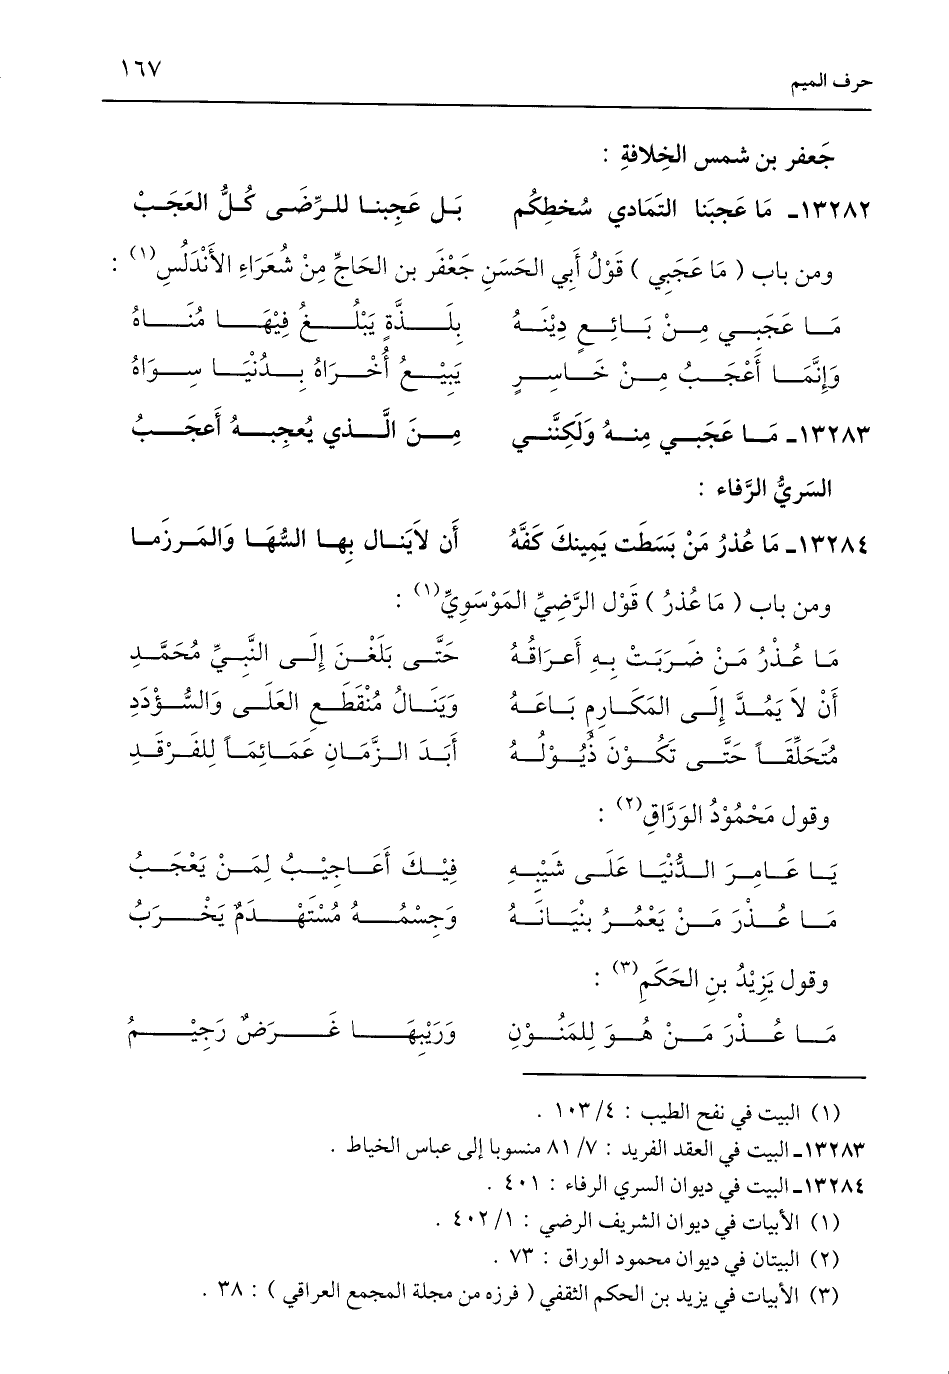 حرف الميم ١٦٧
جَعفر بن شمس الخِلافةِ :
١٣٢٨٢ـ مَا عَجبَنا التَمادي سُخطِكُم بَـل عَجِبنـا للـرِّضَـى كُـلُّ العَجَـبْ
ومن باب ( مَا عَجَبِي ) قَوْلُ أبي الحَسَنِ جَعْفَرِ بن الحَاجِّ مِنْ شُعَرَاءِ الأَنْدَلُسِ(١) :
مَـا عَجَبـي مِـنْ بَـائِـعٍ دِيْنَـهُ بِلَـذَّةٍ يَبْلُـغُ فِيْهَـا مُنَـاهُ
وَإِنَّمَـا أَعْجَـبُ مِـنْ خَـاسِـرٍ يَبِيْـعُ أُخْـرَاهُ بِـدُنْيَـا سِـوَاهُ
١٣٢٨٣ـ مَـا عَجَبـي مِنـهُ وَلَكِنَّنـي مِـنَ الَّـذي يُعجِبـهُ أَعجَـبُ
السَريُّ الرَّفاء :
١٣٢٨٤ـ مَا عُذرُ مَنْ بَسَطَت يَمِينكَ كَفَّهُ أَن لاَيَنَـال بِهـا السُّهَـا وَالمَـرزمـا
ومن باب ( مَا عُذرُ ) قَوْل الرَّضِيِّ المَوْسَوِيِّ(١) :
مَـا عُـذْرُ مَـنْ ضَـرَبَـتْ بِـهِ أَعـرَاقُـهُ حَتَّـى بَلَغْـنَ إِلَـى النَّبِـيِّ مُحَمَّـدِ
أَنْ لاَ يَمُـدَّ إِلَـى المَكَـارِمِ بَـاعَـهُ وَيَنَـالُ مُنْقَطَـعِ العَلَـى وَالسُّـؤْدَدِ
مُتَحَلِّقَـاً حَتَّـى تَكُـوْنَ ذُيُـوْلُـهُ أَبَـدَ الـزَّمَـانِ عَمَـائِمَـاً لِلفَـرْقَـدِ
وقول مَحْمُوْدُ الوَرَّاقِ(٢) :
يَـا عَـامِـرَ الـدُّنْيَـا عَلَـى شَيْبِـهِ فِيْـكَ أَعَـاجِيْـبُ لِمَـنْ يَعْجَـبُ
مَـا عُـذْرَ مَـنْ يَعْمُـرُ بِنْيَـانَـهُ وَجِسْمُـهُ مُسْتَهْـدَمٌ يَخْـرَبُ
وقول يَزِيْدُ بنِ الحَكَمِ(٣) :
مَـا عُـذْرَ مَـنْ هُـوَ لِلمَنُـوْنِ وَرَيْبِهَـا غَـرَضٌ رَجِيْـمُ
(١) البيت في نفح الطيب : ٤/ ١٠٣ .
١٣٢٨٣ـ البيت في العقد الفريد : ٧/ ٨١ منسوبا إلى عباس الخياط .
١٣٢٨٤ـ البيت في ديوان السري الرفاء : ٤٠١ .
(١) الأبيات في ديوان الشريف الرضي : ١/ ٤٠٢ .
(٢) البيتان في ديوان محمود الوراق : ٧٣ .
(٣) الأبيات في يزيد بن الحكم الثقفي ( فرزه من مجلة المجمع العراقي ) : ٣٨ .